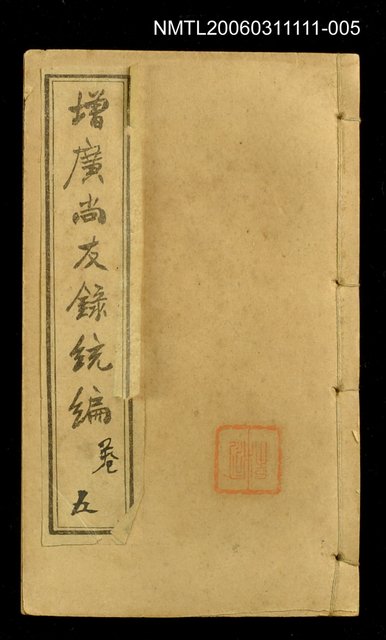 NMTL20060311111-005
增廣尚友錄統編
卷五